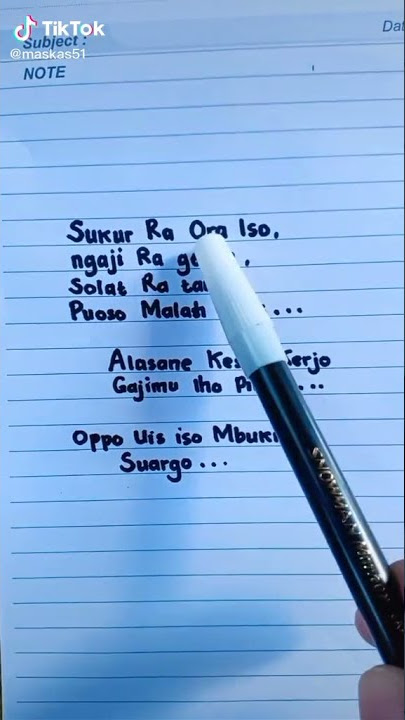 TikTok
@maskas51
Subject :
Dat
NOTE
Sukur Ra Ora Iso,
ngaji Ra
Solat Ra
Puoso Malah ...
Alasane Kerjo
Gajimu lho
Oppo Uis iso
Suargo...
SNOWMAN